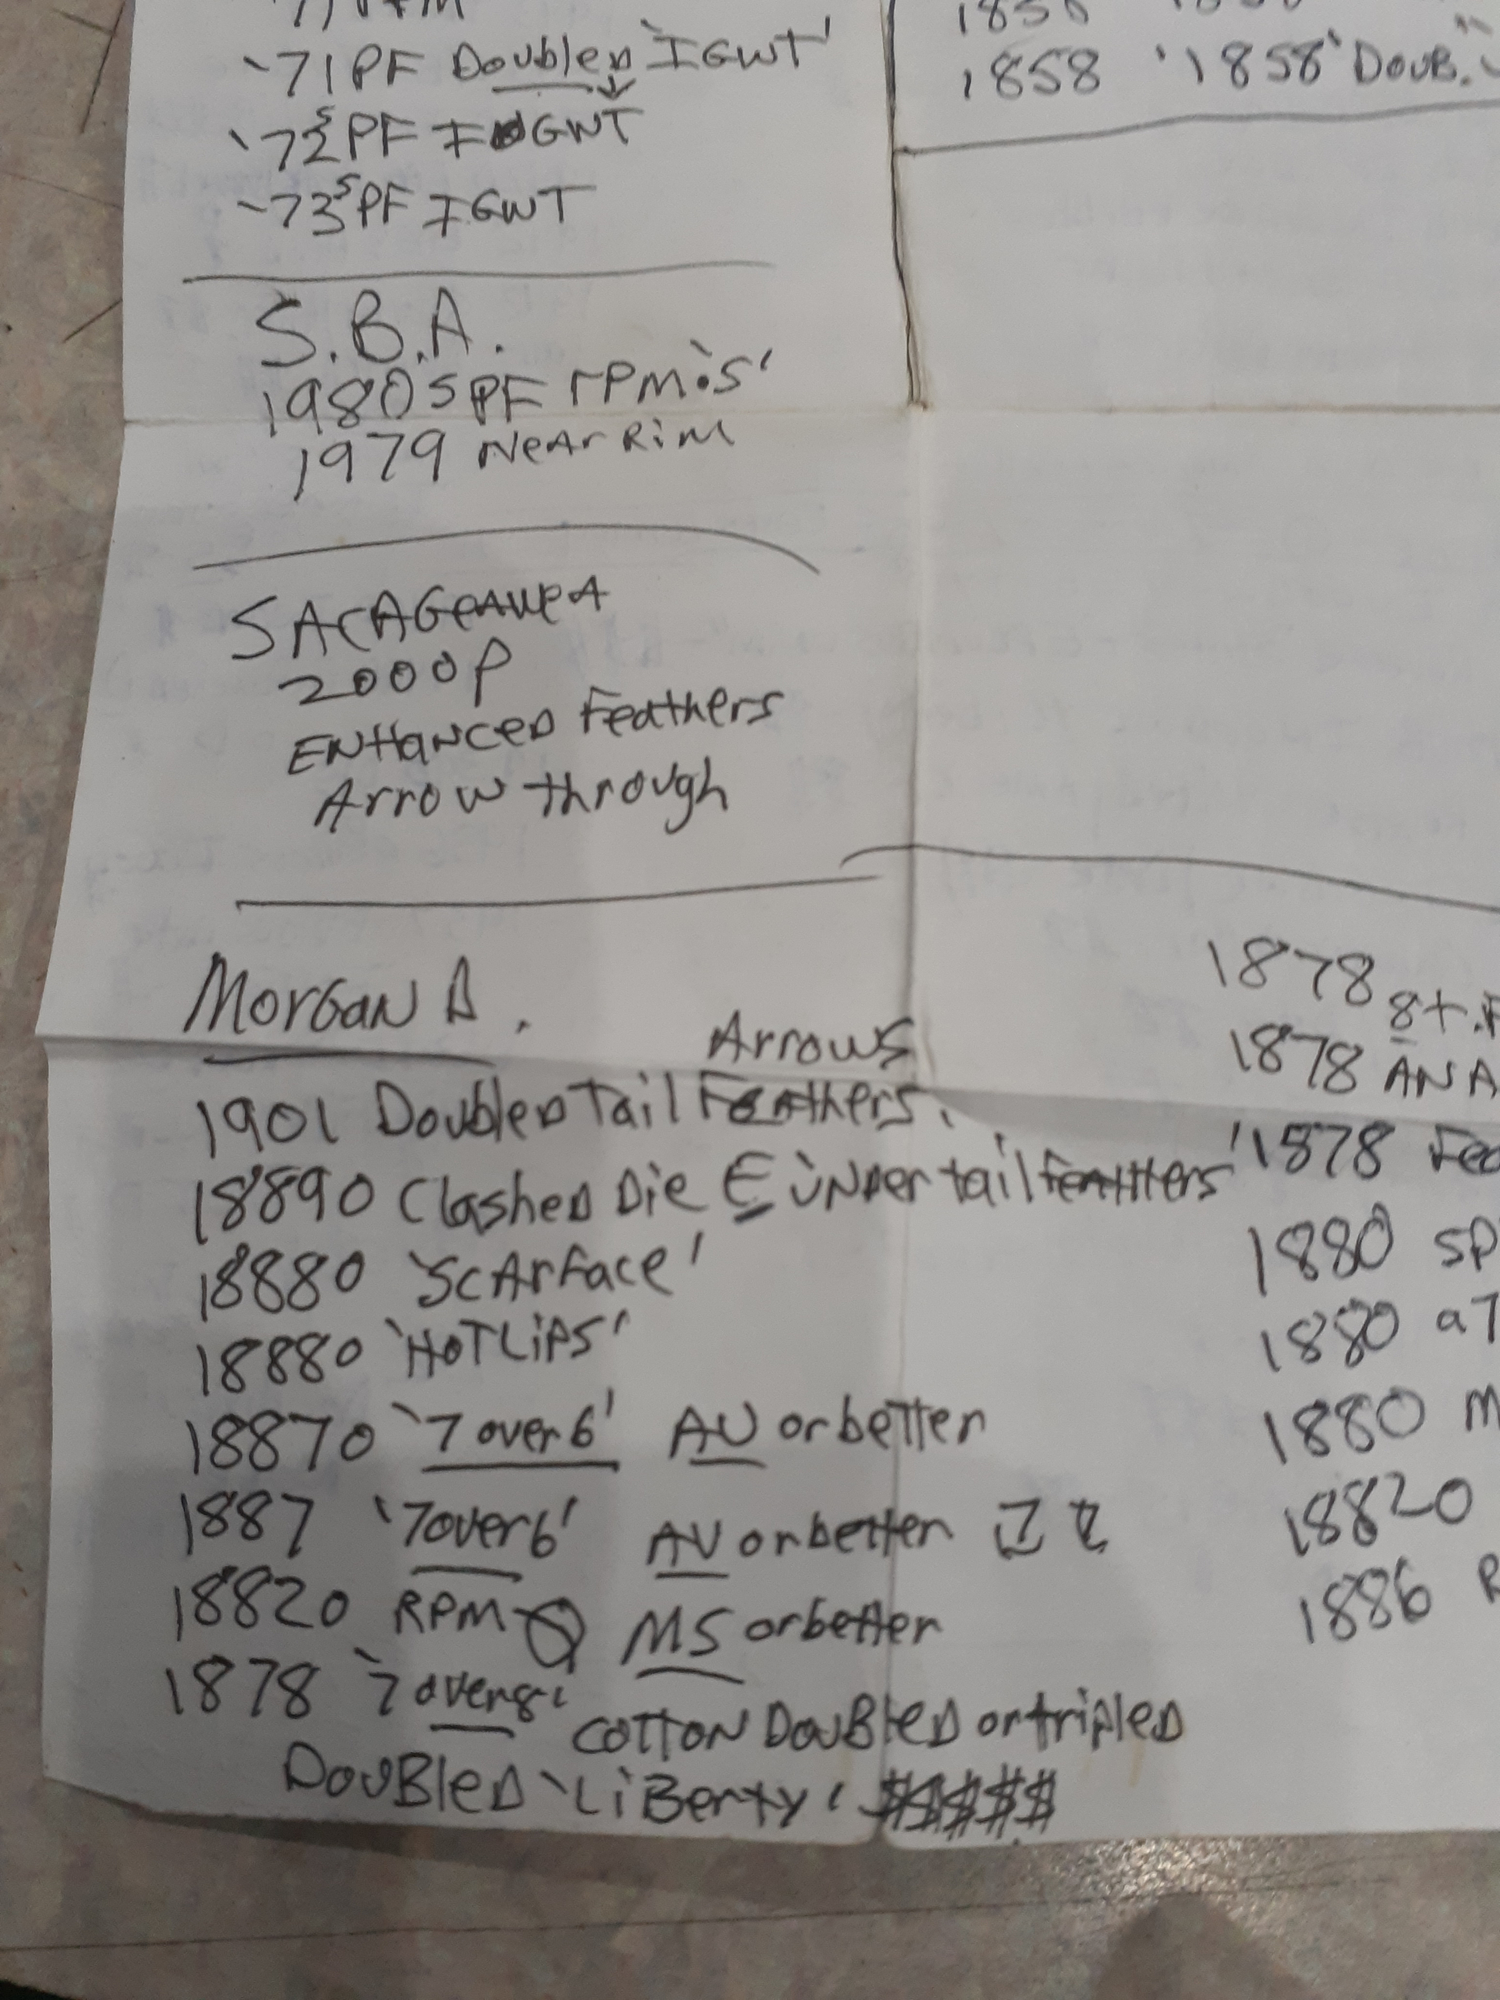 '71 PF Doubled 'IGWT'
'72 S PF IGWT
'73 S PF IGWT
S.B.A.
1980 S PF rPM 'S'
1979 NeAr RiM
SACAGeAWeA
2000 P
ENHANCED Feathers
Arrow through
MorGaN D.
Arrows
1901 DoubleD Tail FeAthers.
1889O ClasheD Die E 'uNDer tail feAtHers'
1888O 'ScArface'
1888O 'HOTLiPS'
1887O '7 over 6' AU or beTTer
1887 '7 over 6' AU or better
1882O RPM MS or better
1878 '7 over 8' COTTON DOUBleD or tripleD
DOUBleD 'LiBerty' $$$$$
1858 '1858' DOUB.
1878 8 t.F
1878 ANA
'1878 Fea
1880 SP
1880 a7
1880 M
1882O
1886 R